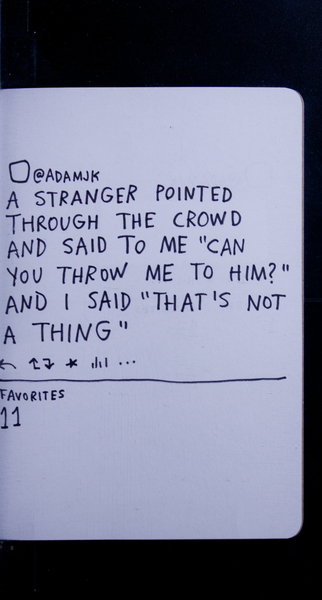 @ADAMJK
A STRANGER POINTED
THROUGH THE CROWD
AND SAID TO ME "CAN
YOU THROW ME TO HIM?"
AND I SAID "THAT'S NOT
A THING"
FAVORITES
11